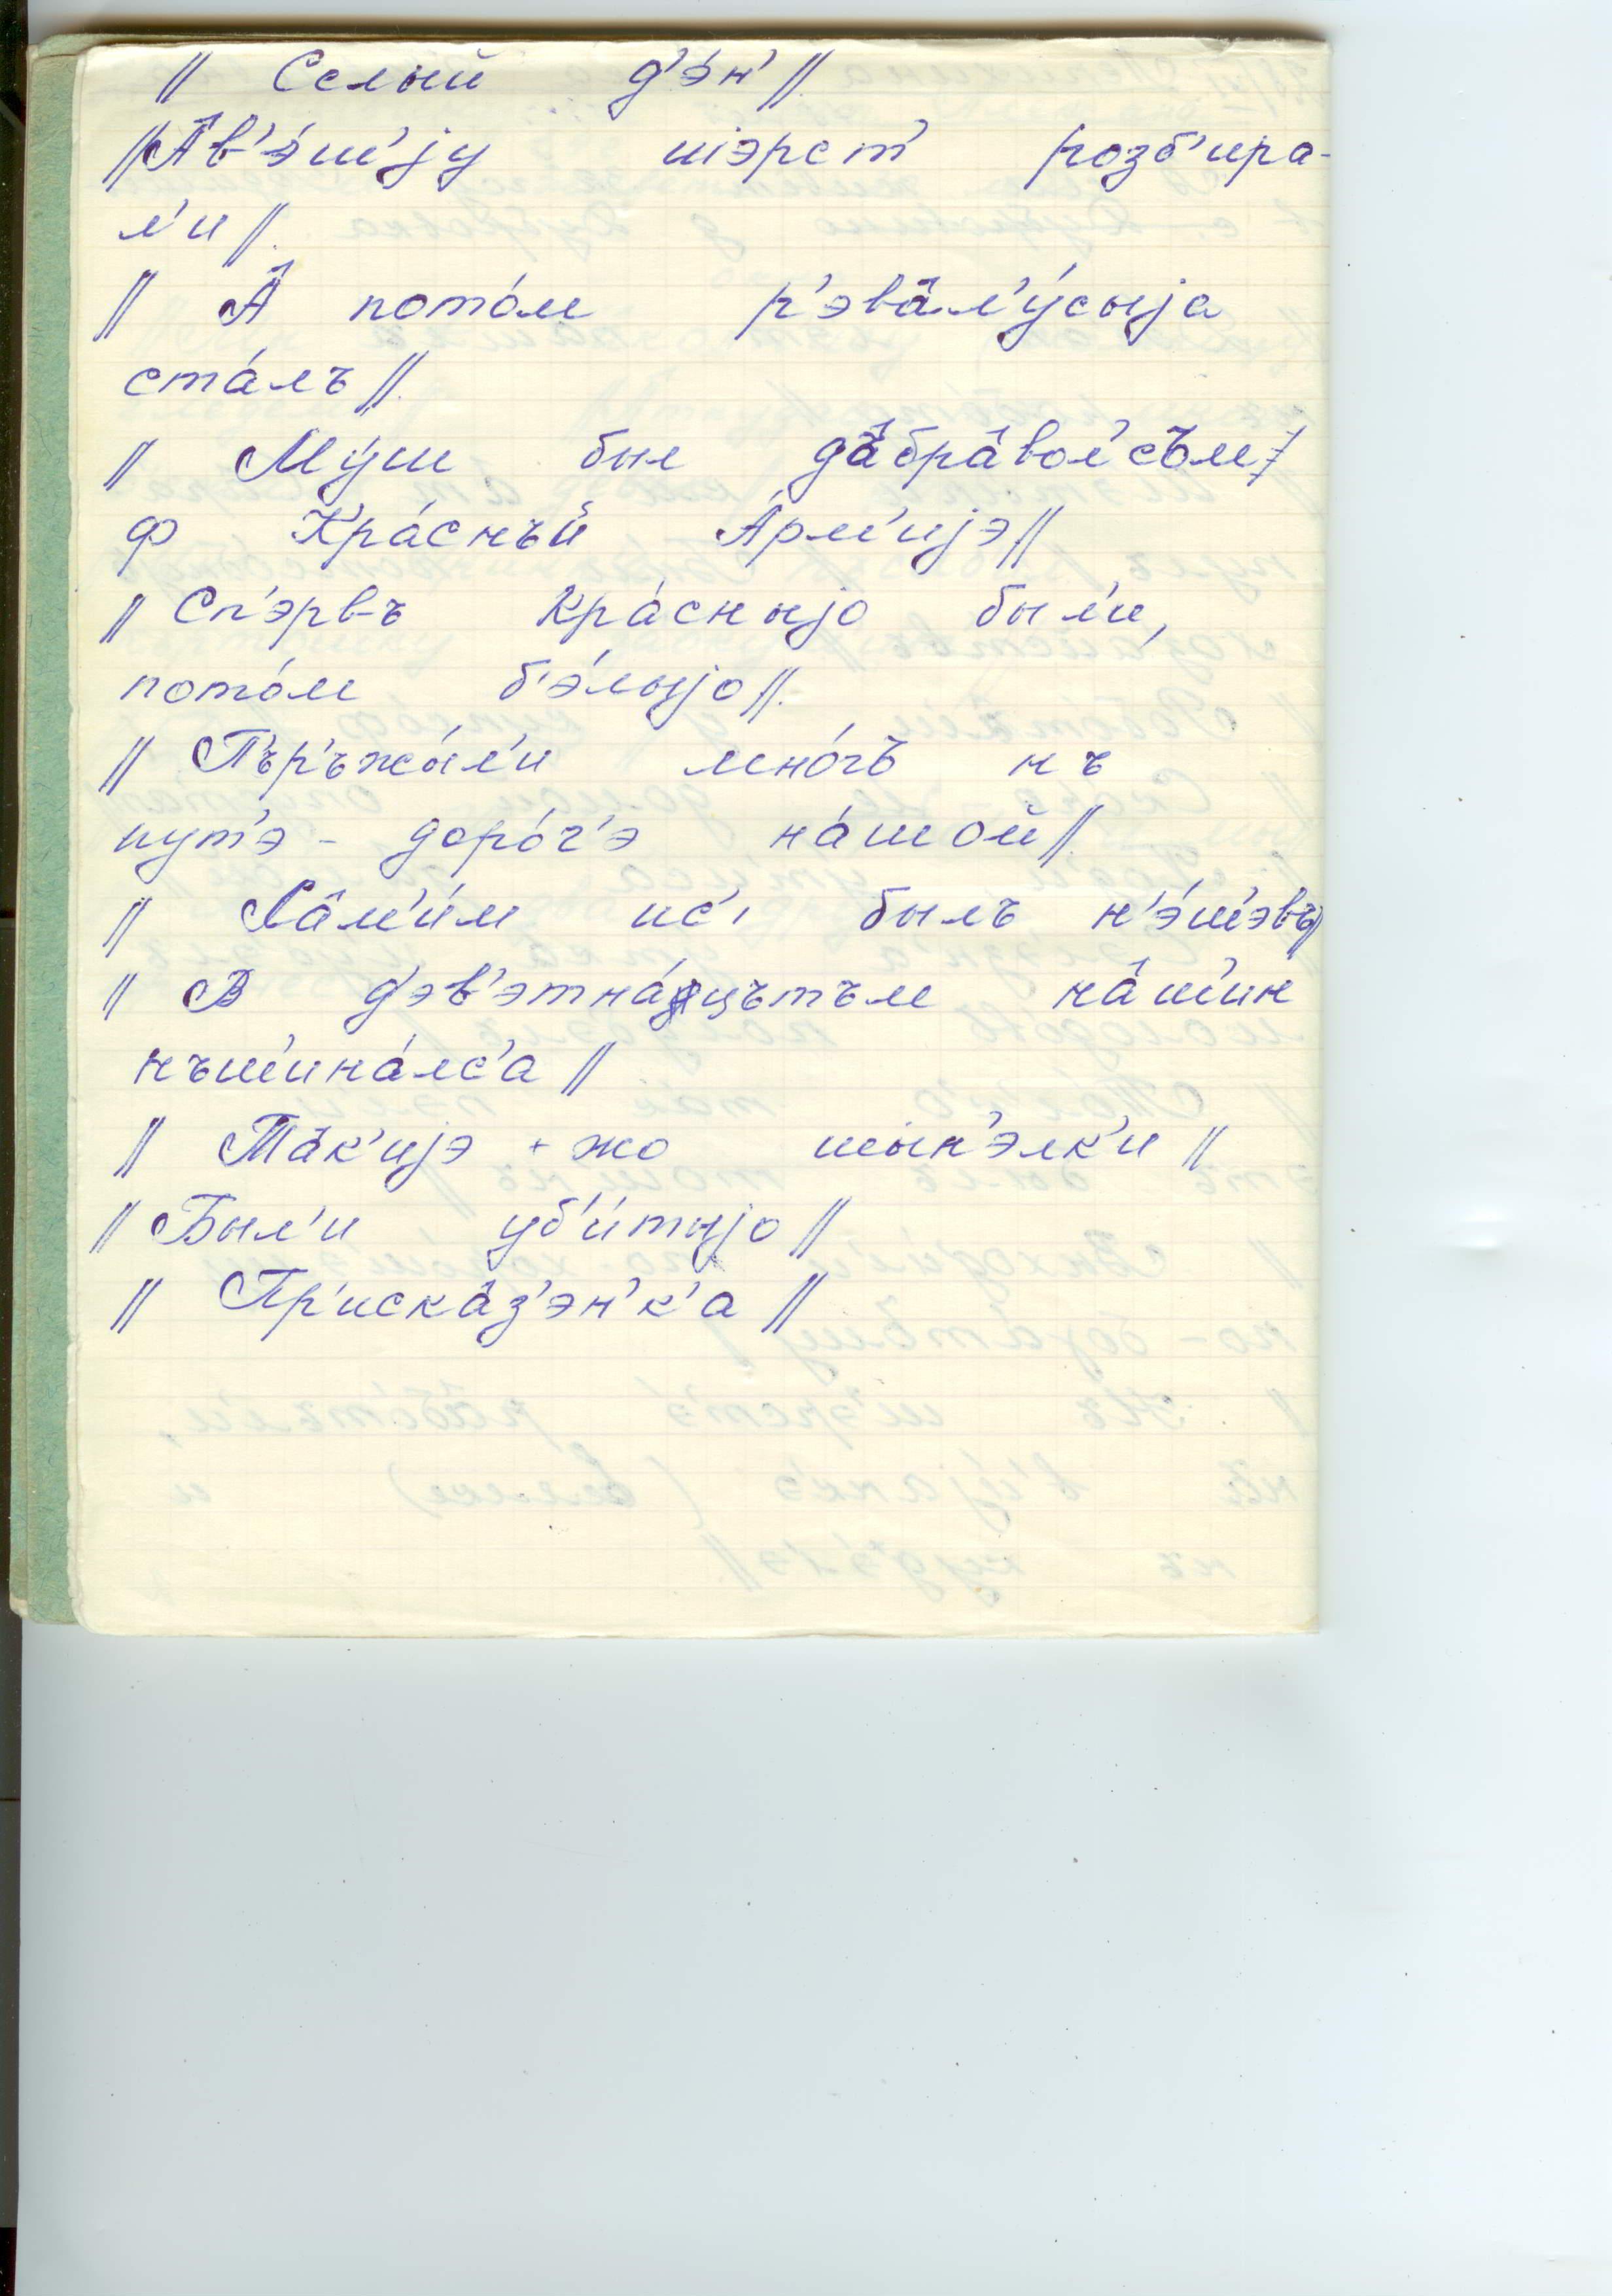 // Селый д'э́н' //
// А̂в'э́ш'jу шэрст' розб'ира-
л'и //
// А̂ пото́м р'эва̂л'у́сыjа
ста́лъ //
// Му́ш был да̂бра̂вол'съм //
ф Кра́снъй А́рм'иjэ //
// Сп'эрвъ кра́сныjо был'и,
пото́м б'э́лыjо //
// П'ър'ъжы́л'и мно́гъ нъ
пут'э - доро́г'э на́шой //
// Ха̂м'и́м ис'т былъ н'э́ш'эвъ //
// В д'эв'этна́цътъм на̂ш'ин
нъш'ина́лс'а //
// Та̂к'иjэ + жо шын'элк'и //
// Был'и уб'и́тыjо //
// Пр'иска̂з'эн'к'а //